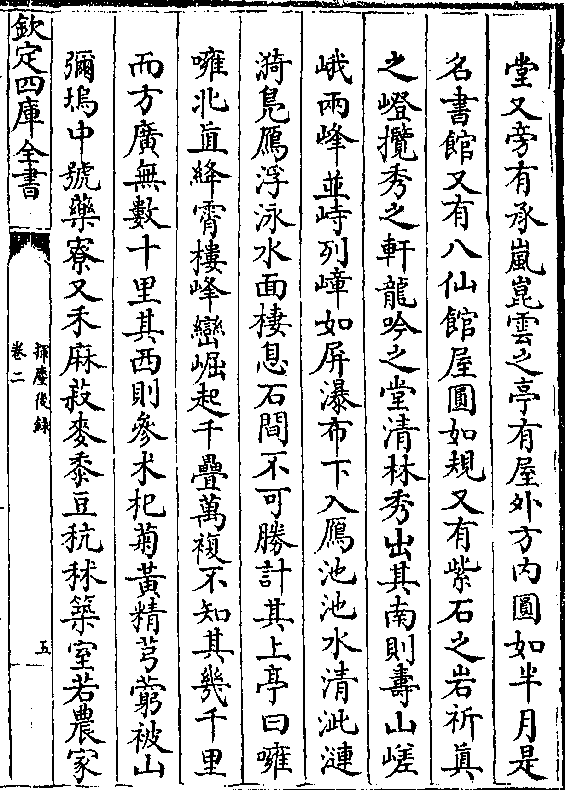 堂又旁有承嵐崑雲之亭有屋外方内圓如半月是
名書館又有八仙館屋圓如規又有紫石之岩祈真
之嶝攬秀之軒龍吟之堂清林秀出其南則壽山嵯
峨兩峰並峙列嶂如屏瀑布下入鴈池池水清泚漣
漪鳧鴈浮泳水面棲息石間不可勝計其上亭曰噰
噰北直絳霄樓峰巒崛起千疊萬複不知其幾千里
而方廣無數十里其西則參术杞菊黃精芎藭被山
彌塢中號藥寮又禾麻菽麥黍豆秔秫築室若農家
欽定四庫全書
揮麈後錄
卷二
五